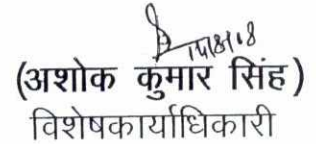 (अशोक कुमार सिंह)
विशेषकार्याधिकारी